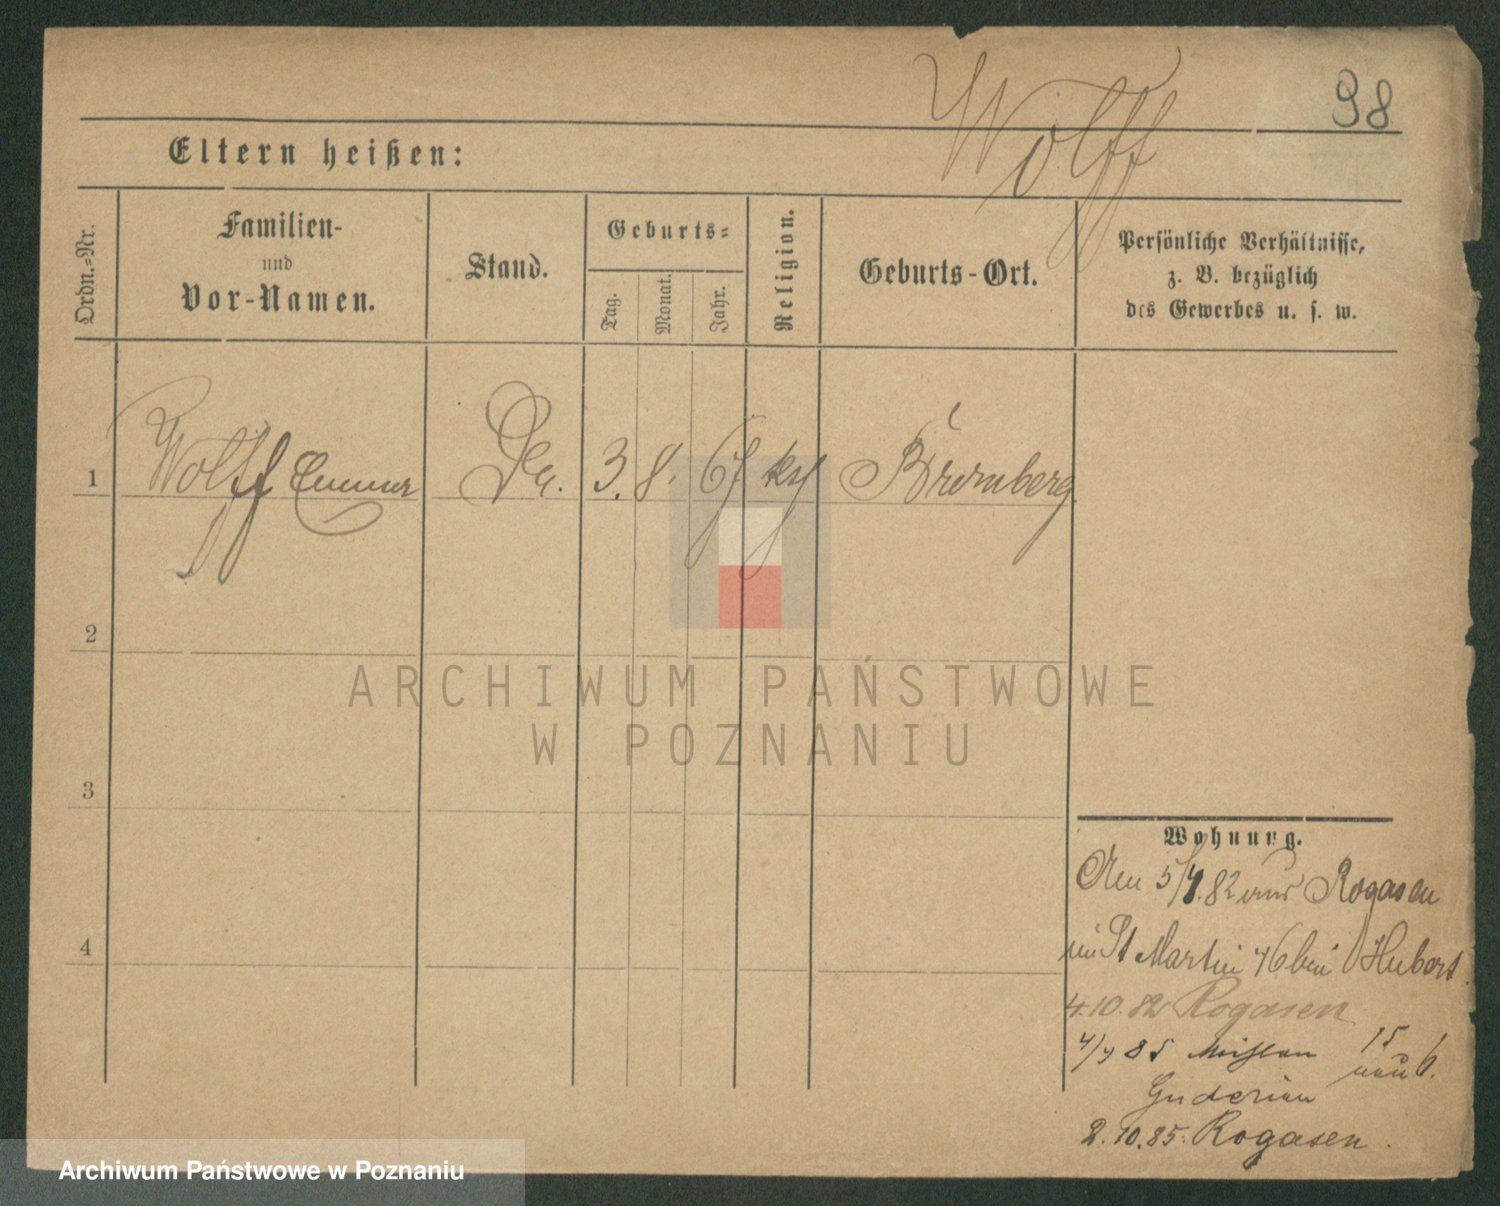 98
Wolff
Eltern heißen:
Ordn.=Nr.
Familien-
und
Vor-Namen.
Stand.
Geburts=
Tag.
Monat.
Jahr.
Religion.
Geburts-Ort.
Persönliche Verhältnisse,
z. B. bezüglich
des Gewerbes u. s. w.
1 Wolff Emma 3. 8. 67 Bromberg
2
3
4
Wohnung.
Am 5/4.82 aus Rogasen
St Martin 46 bei Hubert
4.10.82 Rogasen
4/4 85 15
Guderian
2.10.85. Rogasen.
ARCHIWUM PAŃSTWOWE
W POZNANIU
Archiwum Państwowe w Poznaniu